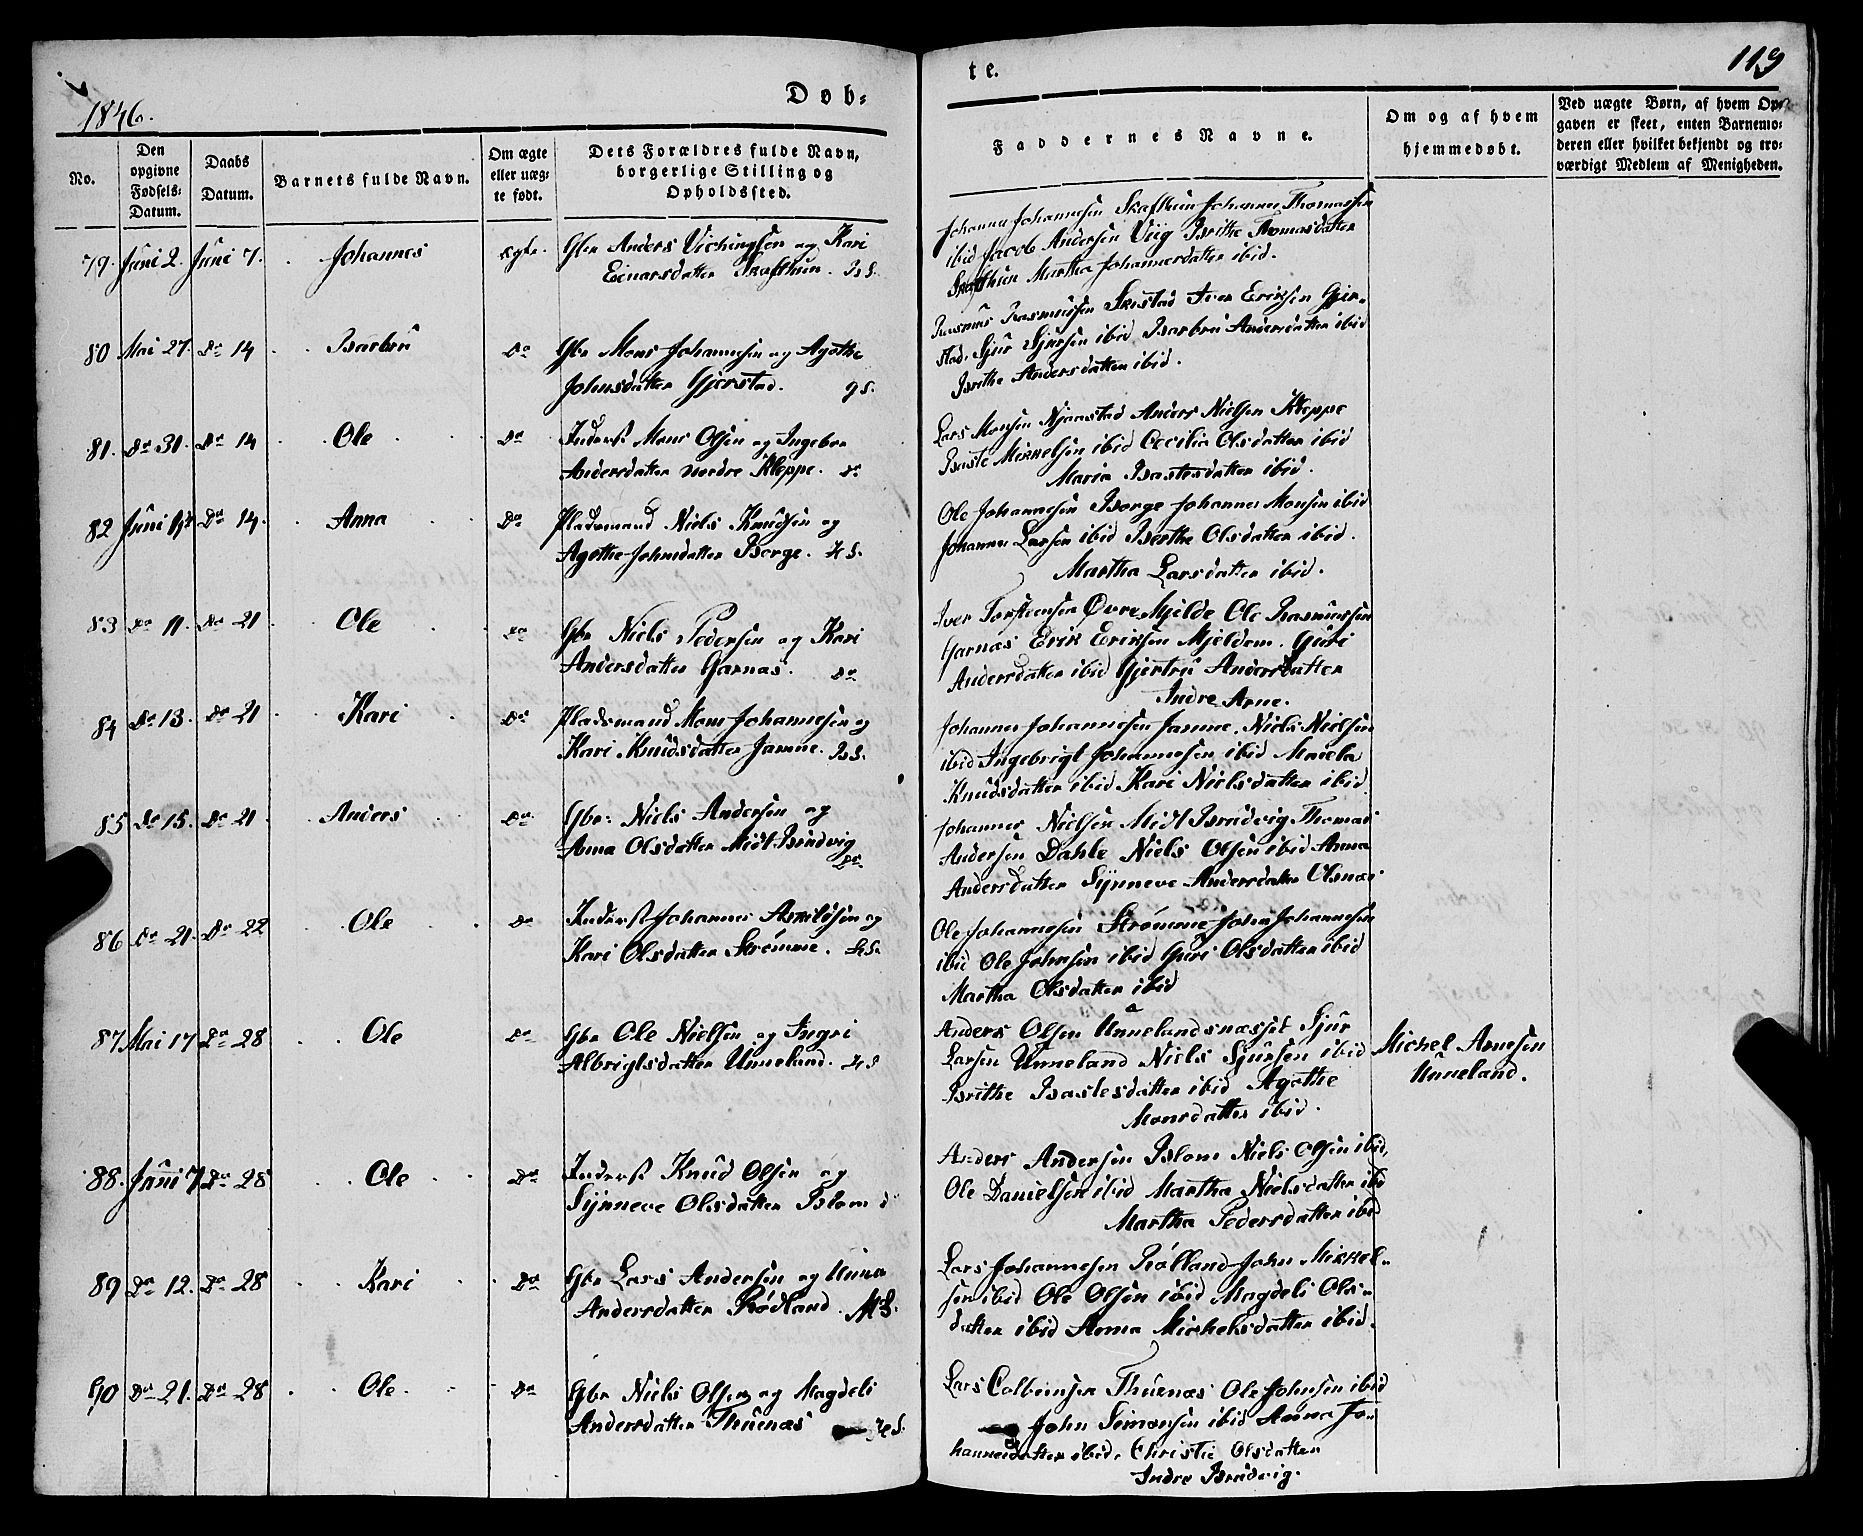 1846.
Døb-
No.
Den opgivne Fødsels-Datum.
Daabs Datum.
Barnets fulde Navn.
Om ægte eller uæg-te født.
Dets Forældres fulde Navn, borgerlige Stilling og Opholdssted.
te.
119
Faddernes Navne.
Om og af hvem hjemmedøbt.
Ved uægte Børn, af hvem Op-gaven er skeet, enten Barnemo-deren eller hvilket bekjendt og tro-værdigt Medlem af Menigheden.
79. Juni 2. Juni 7. Johannes ægte. Gbr Anders Vichingsen og Kari
Einarsdatter Skafthun.
Johannes Johannesen Skafthun Johannes Thomassen
ibid Jacob Andersen Viig Brithe Thomasdatter
Skafthun Martha Johannesdatter ibid.
80 Mai 27. Do 14 Barbru Do Gbr Mons Johannesen og Agathe
Johnsdatter Gjerstad.
Rasmus Rasmussen Skistad Iver Eriksen Gjer-
stad, Sjur Sjursen ibid Barbru Andersdatter ibid
Brithe Andersdatter ibid.
81. Do 31. Do 14 Ole Do Inderst Mons Olsen og Ingebor
Andersdatter nordre Kleppe. do
Lars Monsen Njaastad Anders Nielsen Kleppe
Baste Mikkelsen ibid Cecilia Olsdatter ibid
Maria Bastesdatter ibid.
82 Juni Do 14. Anna Do Pladsmand Niels Knudsen og
Agathe Johnsdatter Borge. HS.
Ole Johannesen Borge Johannes Monsen ibid
Johannes Larsen ibid Berthe Olsdatter ibid.
Martha Larsdatter ibid.
83 Do 11. Do 21 Ole Do Gbr Niels Pedersen og Kari
Andersdatter Garnas. Do
Iver Torsteensen Øvre Mjelde Ole Rasmussen
Garnæs Erik Eriksen Mjeldem. Guri
Andersdatter ibid Gjertru Andersdatter
Indre Arne.
84 Do 13. Do 21 Kari Do Pladsmand Mons Johannesen og
Kari Knudsdatter Jamne.
Johannes Johannesen Jamne. Niels Nielsen
ibid Ingebrigt Johannesen ibid Maela
Knudsdatter ibid Kari Nielsdatter ibid
85 Do 15. Do 21. Anders Do Gbr: Niels Andersen og
Anna Olsdatter Midt Brudvig
Do
Johannes Nielsen Midt Brudvig Thomas
Andersen Dahle Niels Olsen ibid Anna
Andersdatter Synneve Andersdatter Olsnæs
86 Do 21. Do 22 Ole Do Inderst Johannes Askildsen og
Kari Olsdatter Strømme. HS.
Ole Johannesen Strømme John Johannesen
ibid Ole Johnsen ibid Guri Olsdatter ibid
Martha Olsdatter ibid
87 Mai 17 Do 28 Ole Do Gbr Ole Nielsen og Ingri
Albrigtsdatter Unneland. HS
Anders Olsen Unnelandsnæsset Sjur
Larsen Unneland Niels Sjursen ibid
Brithe Bastesdatter ibid Agathe
Monsdatter ibid.
Michel Arnesen
Unneland.
88. Juni 7. Do 28 Ole Do Inderst Knud Olsen og
Synneve Olsdatter Blom d
Anders Andersen Blom Niels Olsen ibid,
Ole Danielsen ibid Martha Nielsdatter ibid
Martha Pedersdatter ibid
89 Do 12. Do 28 Kari Do Gbr Lars Andersen og Unna
Andersdatter Rødland. MS.
Lars Johannesen Rølland John Mikkel-
sen ibid Ole Olsen ibid Magdeli Ols-
datter ibid Anna Michelsdatter ibid.
90 Do 21. Do 28 Ole. Do Gbr Niels Olsen og Magdeli
Andersdatter Thuenæs HS.
Lars Colbeinsen Thuenæs Ole Johnsen ibid
John Simonsen ibid Anna Jo-
hannesdatter ibid, Christie Olsdatter
Indre Brudvig.